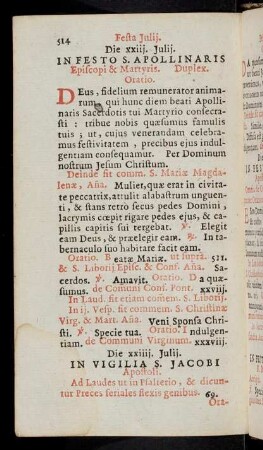 514
Festa Julij.
Die xxiij. Julij.
IN FESTO S. APOLLINARIS
Episcopi & Martyris. Duplex.
Oratio.
DEus, fidelium remunerator anima-
rum, qui hunc diem beati Apolli-
naris Sacerdotis tui Martyrio consecra-
sti : tribue nobis quæsumus famulis
tuis ; ut, cujus venerandam celebra-
mus festivitatem , precibus ejus indul-
gentiam consequamur. Per Dominum
nostrum Jesum Christum.
Deinde fit comm. S. Mariæ Magda-
lenæ, Aña. Mulier, quæ erat in civita-
te peccatrix, attulit alabastrum unguen-
ti, & stans retrò secus pedes Domini ,
lacrymis cœpit rigare pedes ejus, & ca-
pillis capitis sui tergebat. ℣. Elegit
eam Deus, & præelegit eam. ℟. In ta-
bernaculo suo habitare facit eam.
Oratio. Beatæ Mariæ. ut suprà. 511.
& S. Liborij Episc. & Conf. Aña. Sa-
cerdos. ℣. Amavit. Oratio. Da quæ-
sumus. de Comuni Conf. Pont. xxviij.
In Laud. fit etiam comem. S. Liborij.
In ij. Vesp. fit commem. S. Christinæ
Virg. & Mart. Aña. Veni Sponsa Chri-
sti. ℣. Specie tua. Oratio. Indulgen-
tiam. de Communi Virginum. xxxviij.
Die xxiiij. Julij.
IN VIGILIA S. JACOBI
Apostoli.
Ad Laudes ut in Psalterio, & dicun-
tur Preces feriales flexis genibus. 69.
Ora-